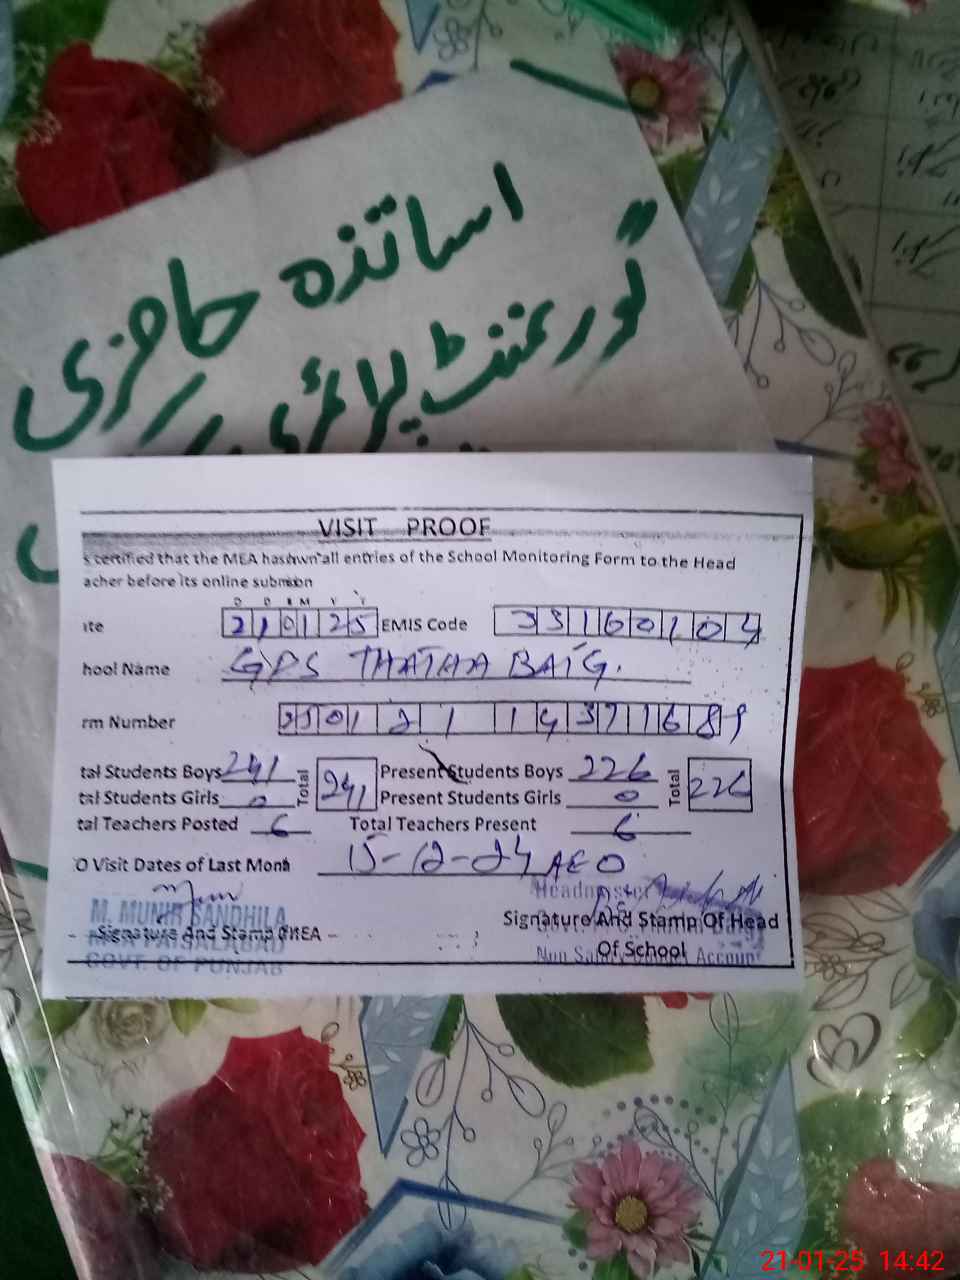 اساتذہ حاضری
گورنمنٹ پرائمری
VISIT PROOF
s certified that the MEA hashwn all entries of the School Monitoring Form to the Head
acher before its online submsion
D D M M Y Y
ite 210125 EMIS Code 33160104
hool Name GPS THATHA BAIG.
rm Number
tal Students Boys 241 Total 241 Present Students Boys 226 Total 226
tal Students Girls 0 Present Students Girls 0
tal Teachers Posted 6 Total Teachers Present 6
O Visit Dates of Last Month 15-12-24 AEO
Headmaster
M. MUNIR SANDHILA
MEA FAISALABAD
GOVT. OF PUNJAB
Signature And Stamp Of MEA
Signature And Stamp Of Head
Of School
Account
21-01-25 14:42